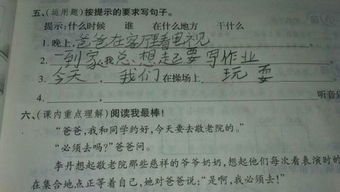 五、(运用题)按提示的要求写句子。
提示:什么时候 谁 在什么地方 干什么
1. 晚上,爸爸在客厅里看电视
2. 一到家,我总想起要写作业
3. 今天,我们在操场上,玩耍
4. , 听音
六、(课内重点理解)阅读我最棒!
“爸爸,我和同学约好,今天要去敬老院的。”
“必须去吗?”爸爸问。
李丹想起敬老院那些慈祥的爷爷奶奶,想起他们每次看表演时的
在集合地点正等着自己,她对爸爸说:“是啊,我必须去!”